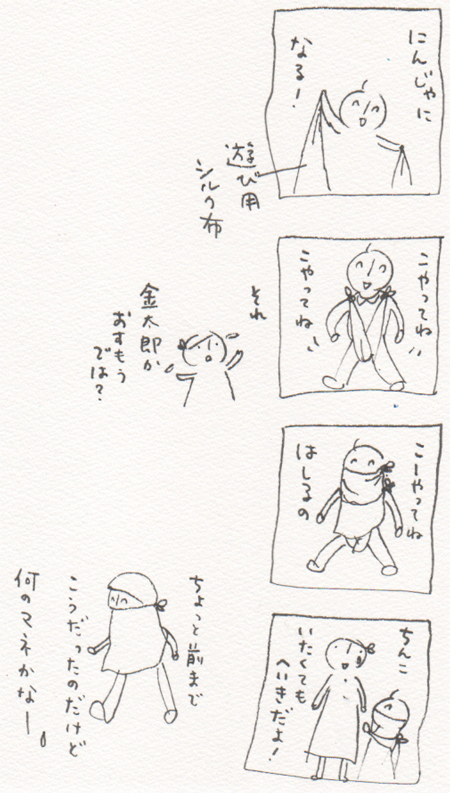 にんじゃに
なる!
遊び用
シルク布
こやってね
こやってね
それ
金太郎か
おすもう
では?
こーやってね
はしるの
ちんこ
いたくても
へいきだよ!
ちょっと前まで
こうだったのだけど
何のマネかなー。